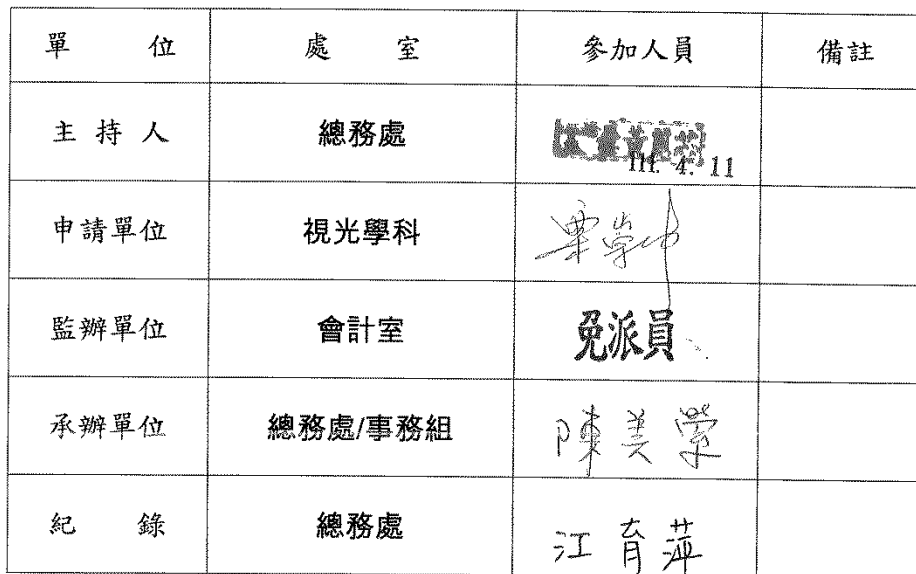 單 位 處 室 參加人員 備註
主 持 人 總務處
111. 4. 11
申請單位 視光學科
監辦單位 會計室 免派員
承辦單位 總務處/事務組 陳美瑩
紀 錄 總務處 江育萍